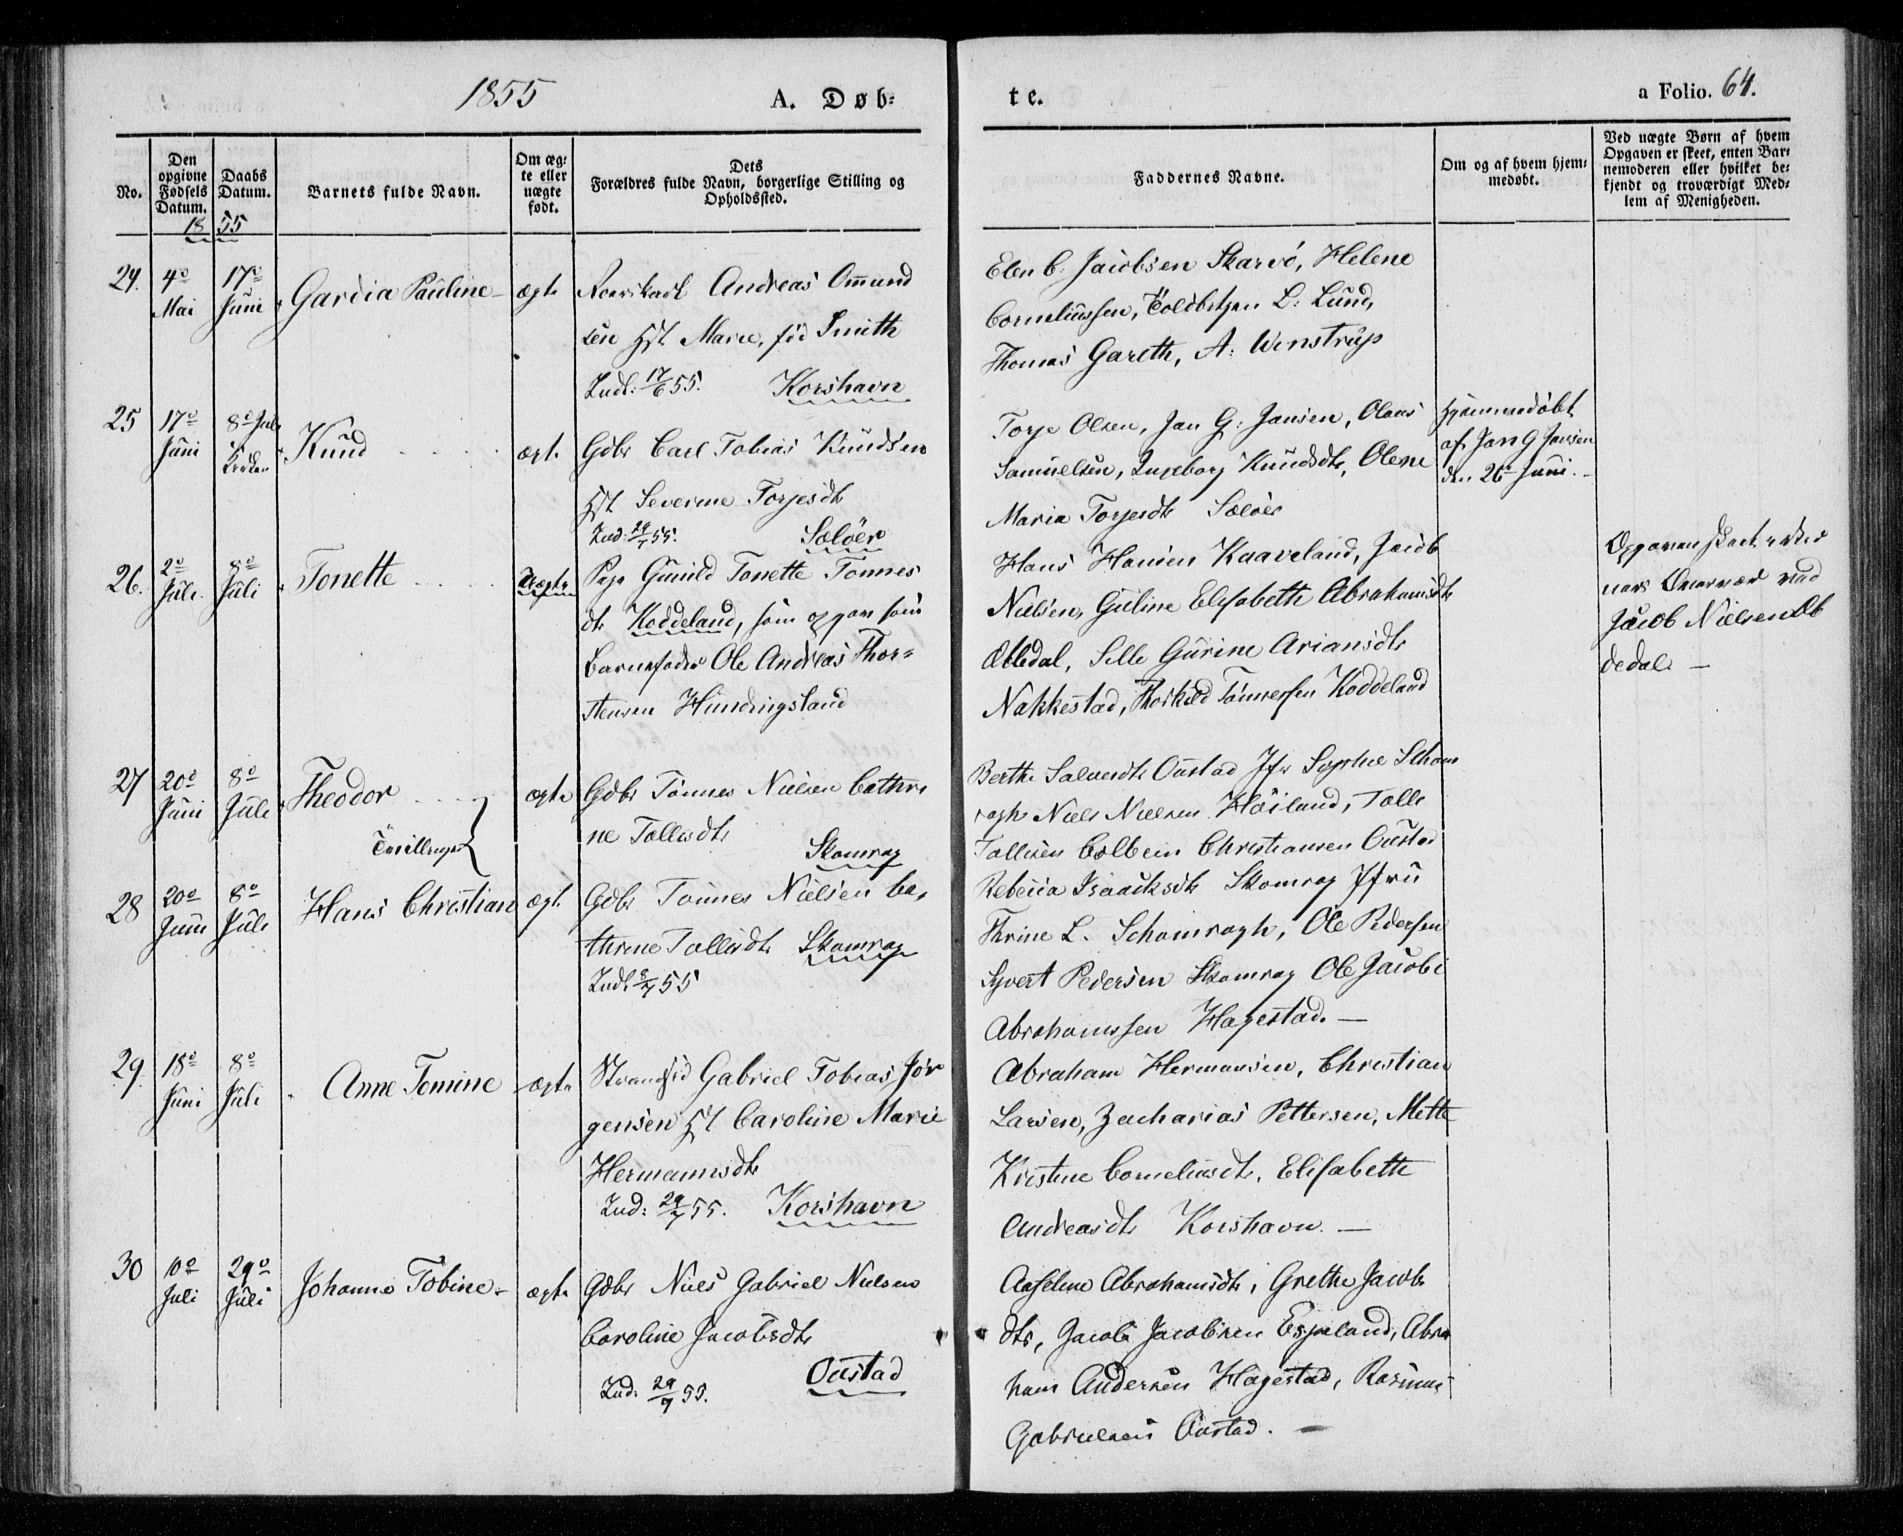 1855
A. Døb-
te.
a Folio. 64.
No.
Den opgivne Fødsels Datum.
Daabs Datum.
Barnets fulde Navn.
Om æg-
te eller
uægte
født.
Dets
Forældres fulde Navn, borgerlige Stilling og
Opholdssted.
Faddernes Navne.
Om og af hvem hjem-
medøbt.
Ved uægte Børn af hvem
Opgaven er skeet, enten Bar-
nemoderen eller hvilket be-
kjendt og troværdigt Med-
lem af Menigheden.
1855
24. 4de Mai 17de Juni Gardia Pauline ægte
Andreas Ommund
sen Hst Marie, fød Smith
Ind: 17/6 55. Korshavn
Elen C. Jacobsen Skarvø, Helene
Corneliussen, Toldbetjen L: Lund,
Thomas Gareth, A: Winstrup
25 17de Juni 8de Juli Knud ægte
Gdbr Carl Tobias Knudsen
Hst Severine Torjesdt
Ind: 29/7 55. Sælöer
Torje Olsen, Jan G: Jansen, Olaus
Samuelsen, Ingeborg Knudsdtr, Olene
Maria Torjesdtr Sælöer
Hjemmedøbt
af Jan G Jansen
den 26de Juni.
26. 2de Juli 8de Juli Tonette Uægte
Pige Gunild Tonette Tønnes
dtr Koddeland, som opgav som
Barnefader Ole Andreas Thor-
stensen Hundingsland
Hans Hansen Kaaveland, Jacob
Nielsen, Guline Elisabeth Abrahamsdtr
Øbbedal, Sille Gurine Ariansdtr
Nakkestad, Thorkild Tønnessen Koddeland
Opgaven skeet
Nærvær ved
Jacob Nielsen Øb
bedal
27 20de Juni 8de Juli Theodor ægte
Tvillinger
Gdbr Tønnes Nielsen Cathri
ne Tollisdtr Skomrag
Berthe Salvesdtr Oustad Jfr Sophie Schom
ragh Niels Nielsen Høiland, Tolle
Tollisen Colbein Christiansen Oustad
28 20de Juni 8de Juli Hans Christian ægte
Gdbr Tønnes Nielsen Ca-
thrine Tollisdtr Skomrag
Ind: 8/7 55
Rebecca Isaacksdtr Skomrag Jfru
Thrine L. Schomragh, Ole Pedersen
Syvert Pedersen Skomrag Ole Jacob
Abrahamssen Hagestad.
29. 18de Juni 8de Juli Anne Tomine ægte
Strandsid Gabriel Tobias Jør
gensen Hst Caroline Marie
Hermansdtr
Ind: 29/7 55. Korshavn
Abraham Hermansen, Christian
Larsen, Zacharias Pettersen, Mette
Kirstine Corneliusdtr, Elisabeth
Andreasdtr Korshavn.
30 10de Juli 29de Juli Johanne Tobine ægte
Gdbr Niels Gabriel Nielsen
Caroline Jacobsdtr
Ind: 29/7 55. Oustad
Aaselene Abrahamsdtr, Grethe Jacobs
dtr, Jacob Jacobsen Espeland, Abra
ham Andersen Hagestad, Rasmus
Gabrielsen Oustad.